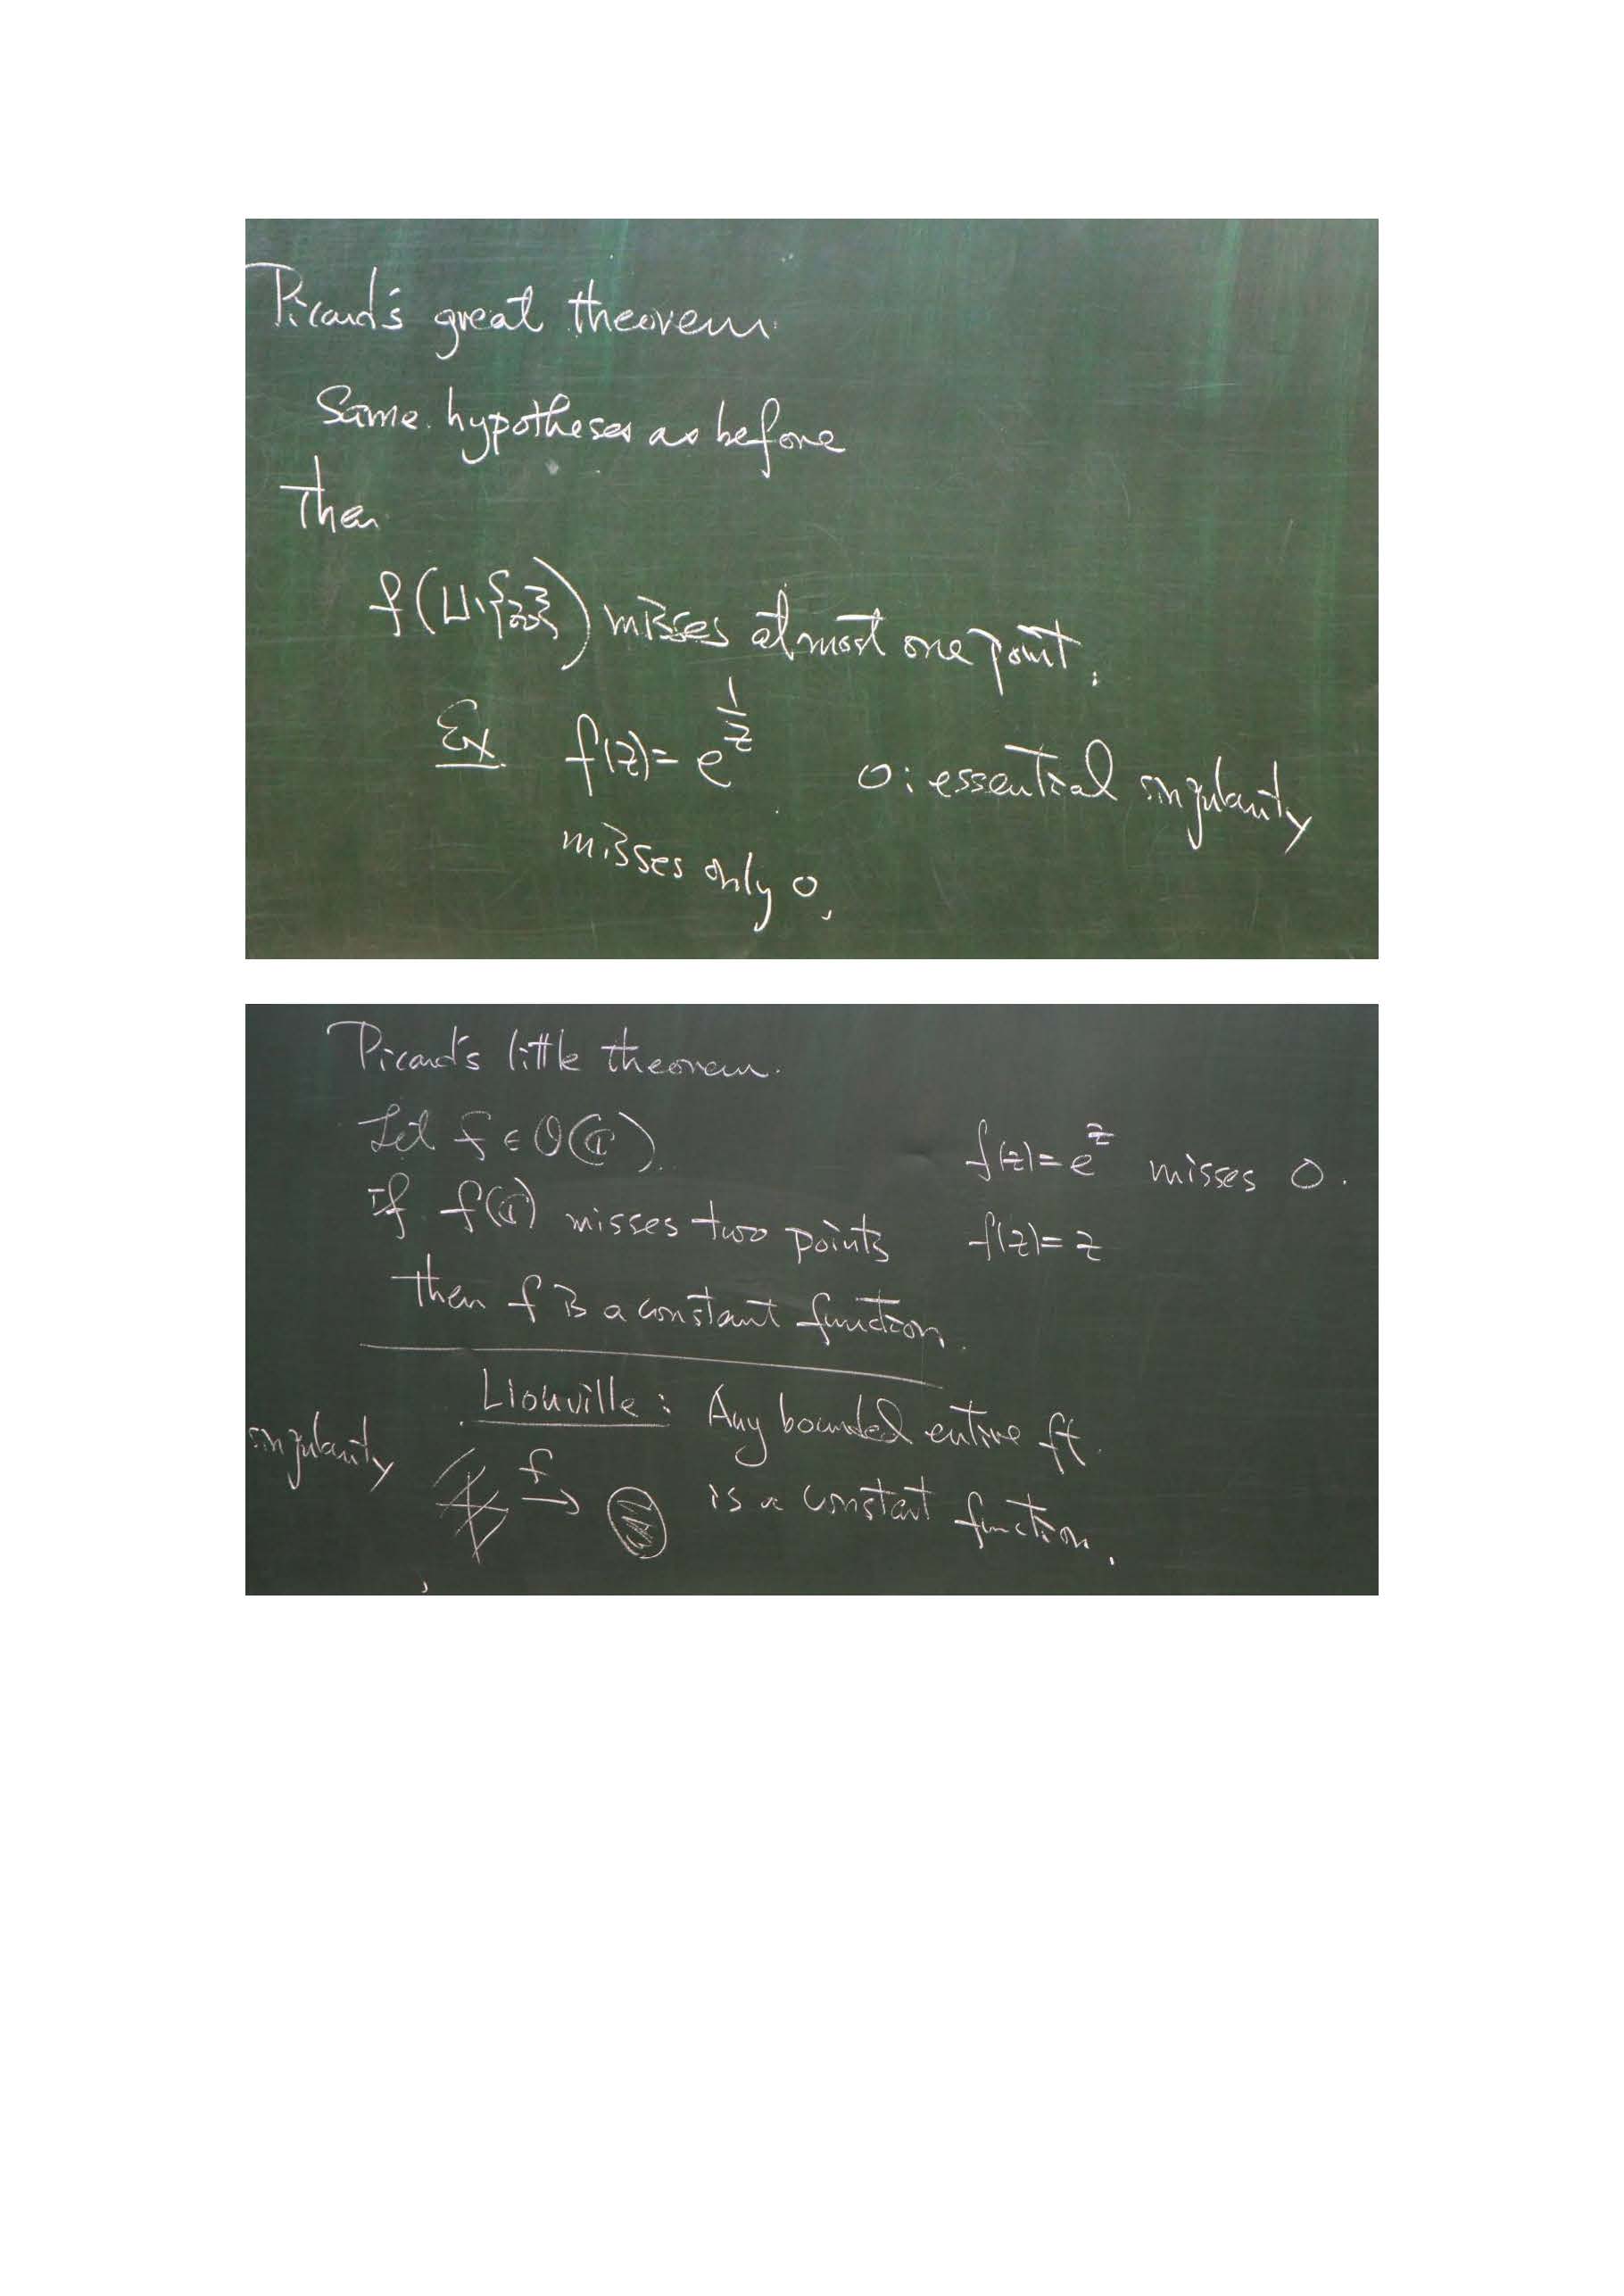 Picard's great theorem.
Same hypotheses as before
Then
f(U\{z₀}) misses at most one point.
Ex f(z)=e^{1/z} 0: essential singularity
misses only 0.
Picard's little theorem.
Let f ∈ O(ℂ).
If f(ℂ) misses two points
then f is a constant function.
f(z)=e^z misses 0.
f(z)=z
Liouville: Any bounded entire ft.
is a constant function.
singularity
f